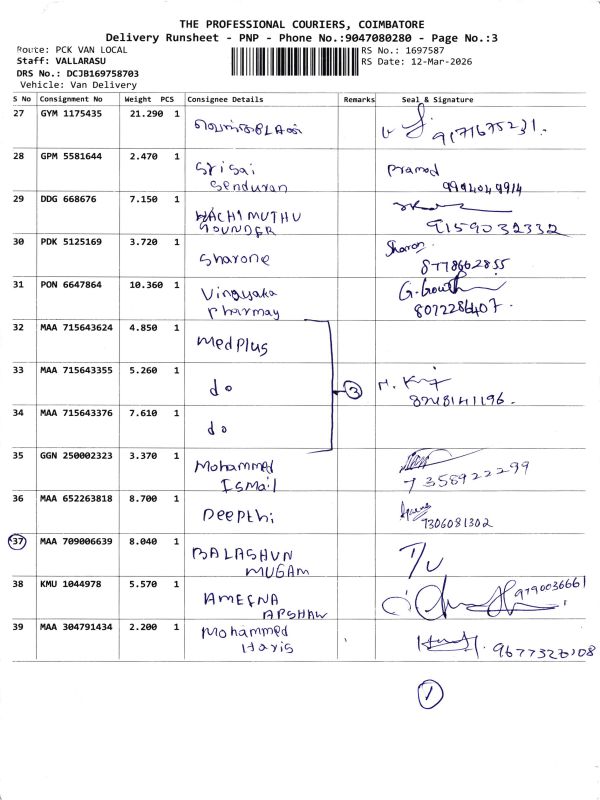 THE PROFESSIONAL COURIERS, COIMBATORE
Delivery Runsheet - PNP - Phone No.:9047080280 - Page No.:3
Route: PCK VAN LOCAL
RS No.: 1697587
Staff: VALLARASU
RS Date: 12-Mar-2026
DRS No.: DCJB169758703
Vehicle: Van Delivery
S No Consignment No Weight PCS Consignee Details Remarks Seal & Signature
27 GYM 1175435 21.290 1
9171675231.
28 GPM 5581644 2.470 1 Sri Sai Pramod
Senduran 9994049914
29 DDG 668676 7.150 1 NACHIMUTHU
GOUNDER 9159032332
30 PDK 5125169 3.720 1 Sharone Sharon
8778662855
31 PON 6647864 10.360 1 Vinayaka G. Gowth
Pharmay 8072286407.
32 MAA 715643624 4.850 1 MedPlus
33 MAA 715643355 5.260 1 do 3
8248141196.
34 MAA 715643376 7.610 1 do
35 GGN 250002323 3.370 1 Mohammed
Ismail 7358922299
36 MAA 652263818 8.700 1 Deepthi
7306081302
37 MAA 709006639 8.040 1 BALASHUN T/U
MUGAM
38 KMU 1044978 5.570 1 AMEENA 9790036661
APSHAW
39 MAA 304791434 2.200 1 Mohammed
Haris 9677320108
1